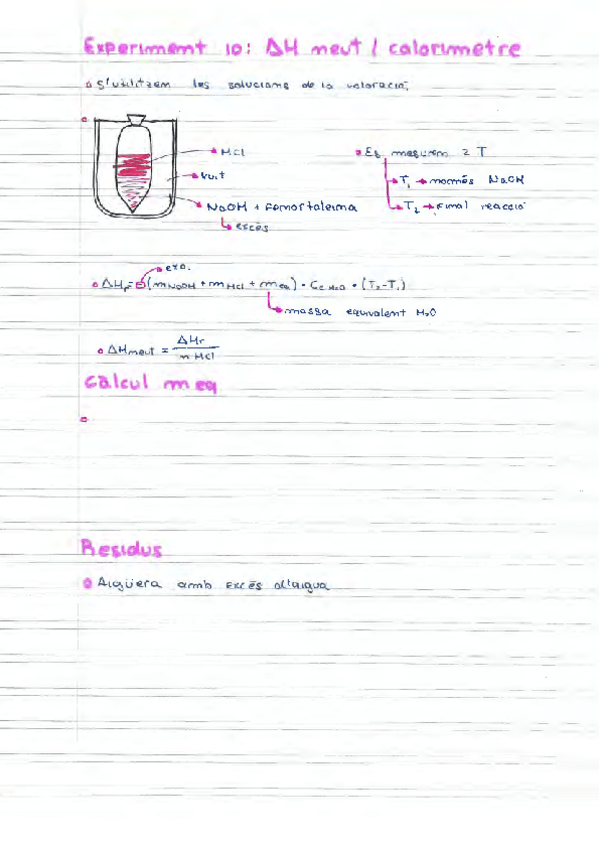 Experiment 10: ΔH neut / calorimetre
S'utilitzem les solucions de la valoració,
HCl
Vuit
NaOH + Fenorftaleïna
excés
Es mesuren 2 T
T₁ → només NaOH
T₂ → final reacció
exo.
ΔHr = ⊖(m NaOH + m HCl + m eq) · Ce H₂O · (T₂-T₁)
massa equivalent H₂O
ΔHneut = ΔHr / n HCl
Càlcul m eq
Residus
Aigüera amb Excés d'aigua